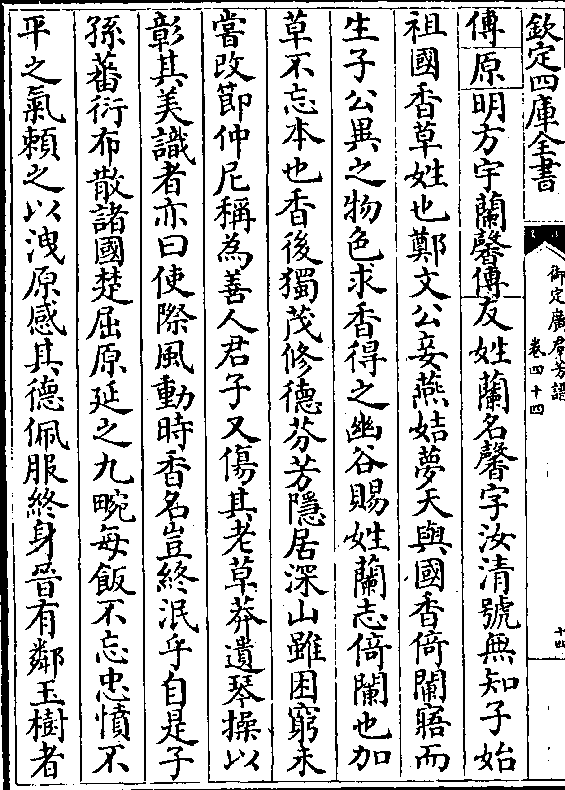 欽定四庫全書
御定廣群芳譜
卷四十四
十四
傳原明方宇蘭馨傳友姓蘭名馨字汝清號無知子始
祖國香草姓也鄭文公妾燕姞夢天與國香倚闌寤而
生子公異之物色求香得之幽谷賜姓蘭志倚闌也加
草不忘本也香後獨茂修德芬芳隱居深山雖困窮未
嘗改節仲尼稱為善人君子又傷其老草莽遺琴操以
彰其美識者亦曰使際風動時香名豈終泯乎自是子
孫蕃衍布散諸國楚屈原延之九畹每飯不忘忠憤不
平之氣頼之以洩原感其德佩服終身晉有鄰玉樹者